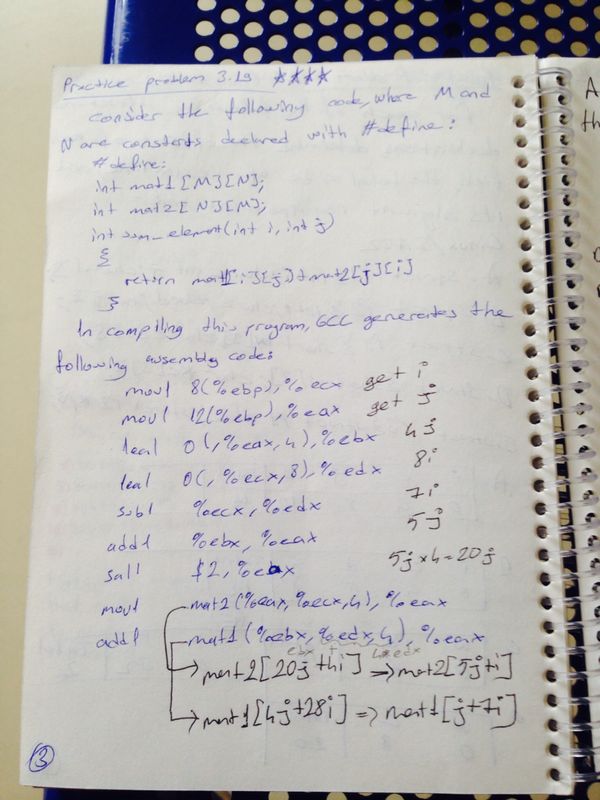 Practice problem 3.19 ★★★★
consider the following code, where M and
N are constants declared with #define:
#define:
int mat1[M][N];
int mat2[N][M];
int sum_element(int i, int j)
{
return mat1[i][j]+mat2[j][i]
}
In compiling this program, GCC generates the
following assembly code:
movl 8(%ebp),%ecx get i
movl 12(%ebp),%eax get j
leal 0(,%eax,4),%ebx 4j
leal 0(,%ecx,8),%edx 8i
subl %ecx,%edx 7i
addl %ebx,%eax 5j
sall $2,%eax 5j×4=20j
movl mat2(%eax,%ecx,4),%eax
addl mat1(%ebx,%edx,4),%eax
ebx + 4*edx
mat2[20j+4i] => mat2[5j+i]
mat1[4j+28i] => mat1[j+7i]
3
A
th